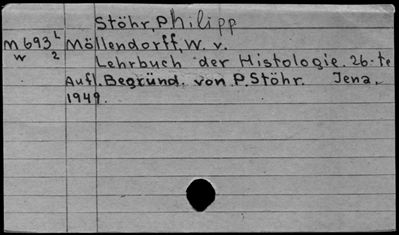 Stöhr, Philipp
M 693 L Möllendorff, W. v.
w 2 Lehrbuch der Histologie. 26-te
Aufl. Begründ. von P. Stöhr. Jena.
1949.